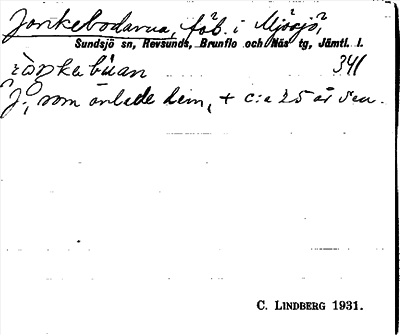 Jonkebodarna, fäb. i Mjösjö,
Sundsjö sn, Revsunds, Brunflo och Näs tg, Jämtl. l.
341
J., som anlade dem, + c:a 25 år sen.
C. LINDBERG 1931.